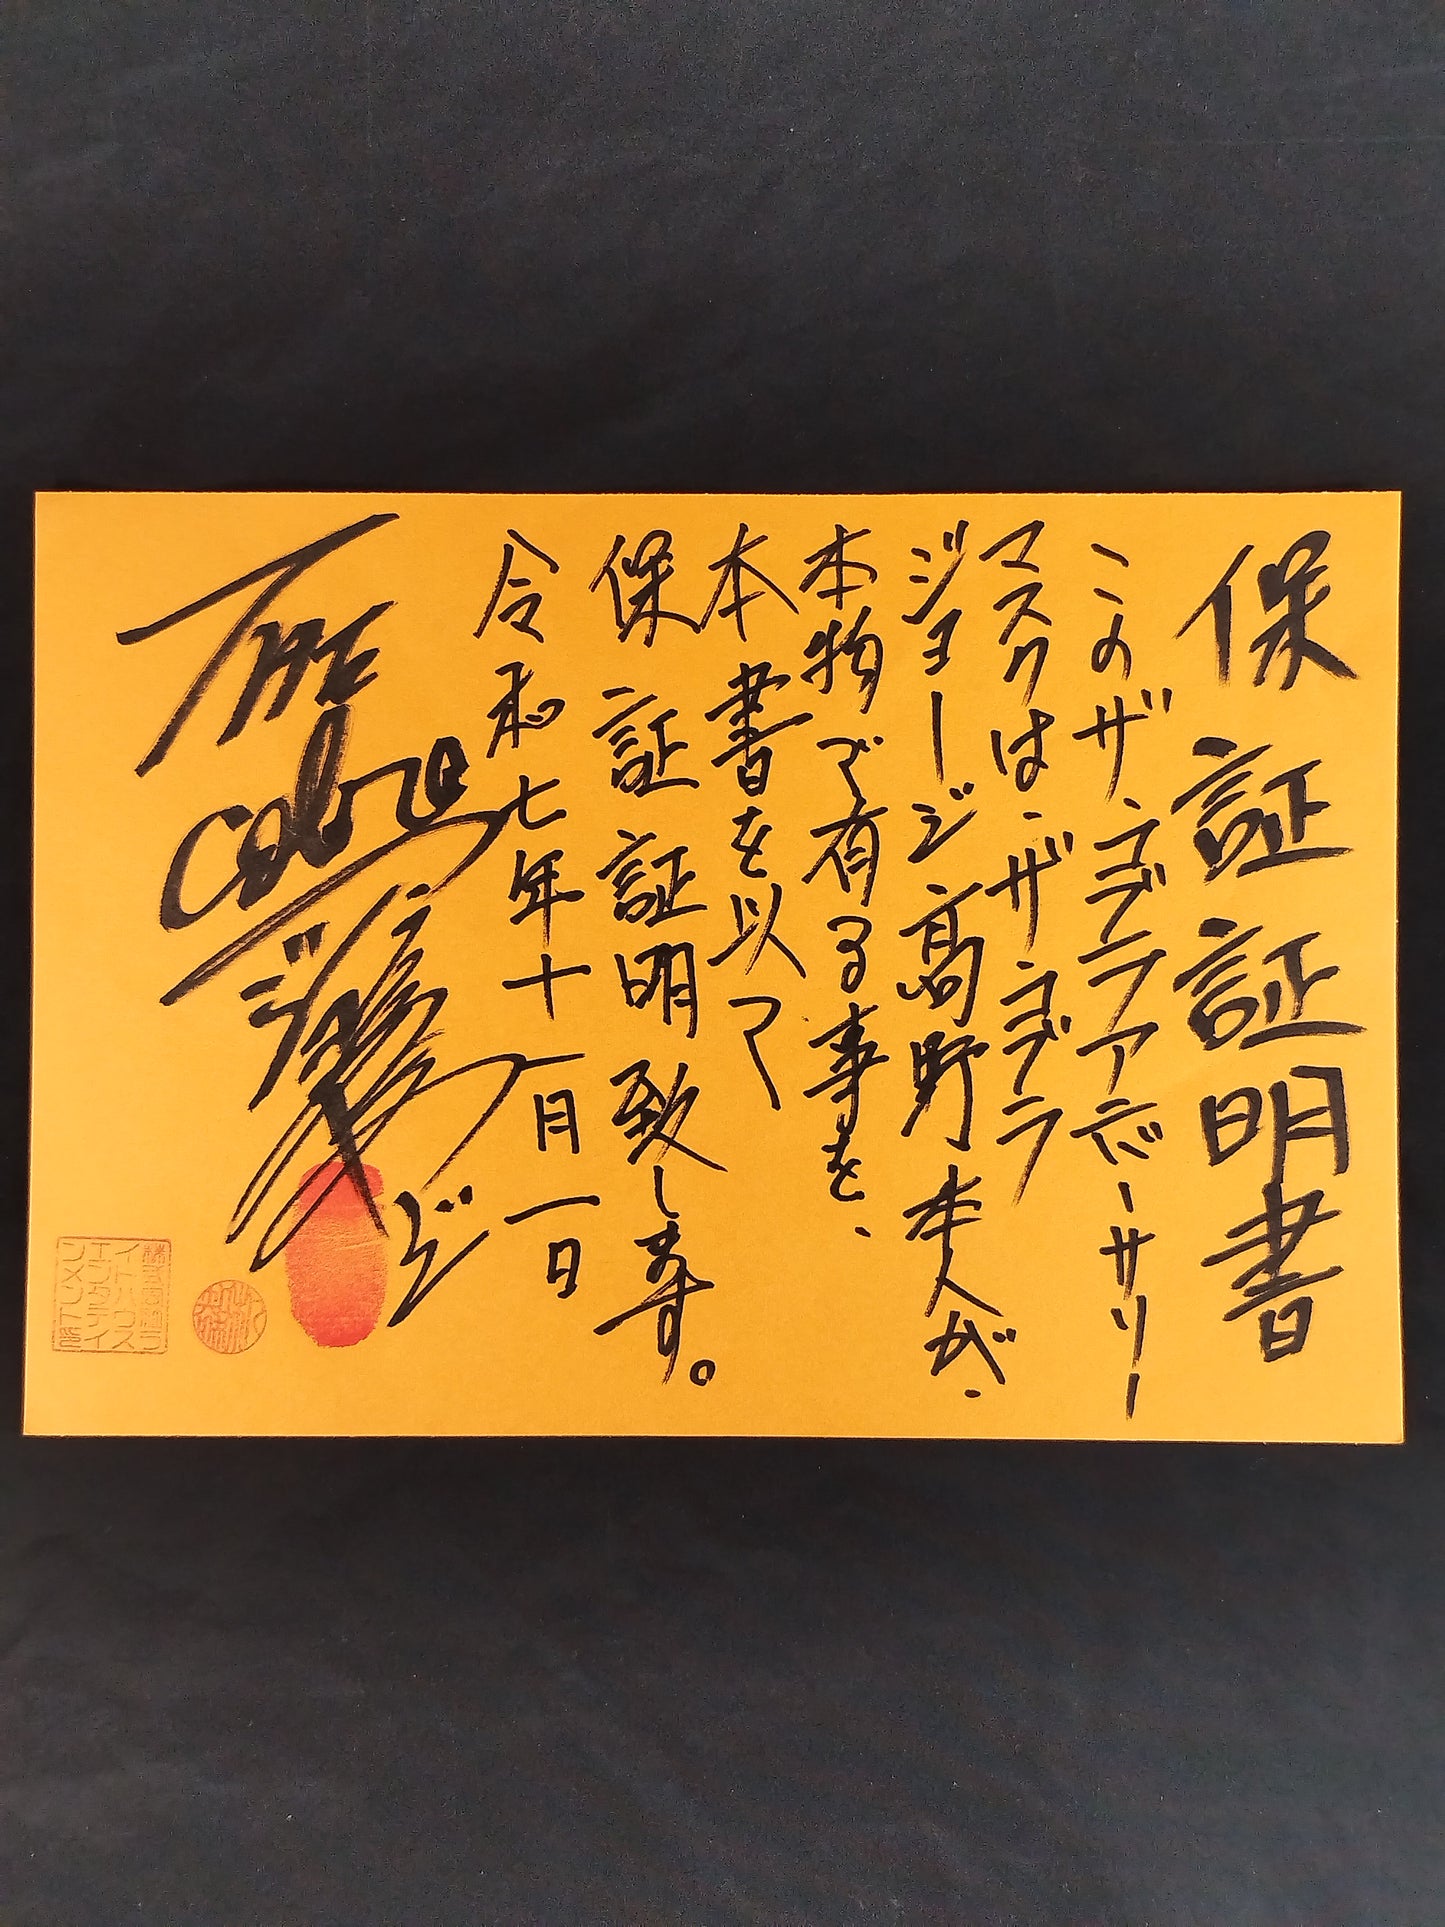 保証証明書
このザ・コブラアナザーサリー
マスクは・ザ・コブラ
ジョージ高野本人が、
本物で有る事を、
本書を以て
保証証明致します。
令和七年十一月一日
THE
Cobra
ジョージ